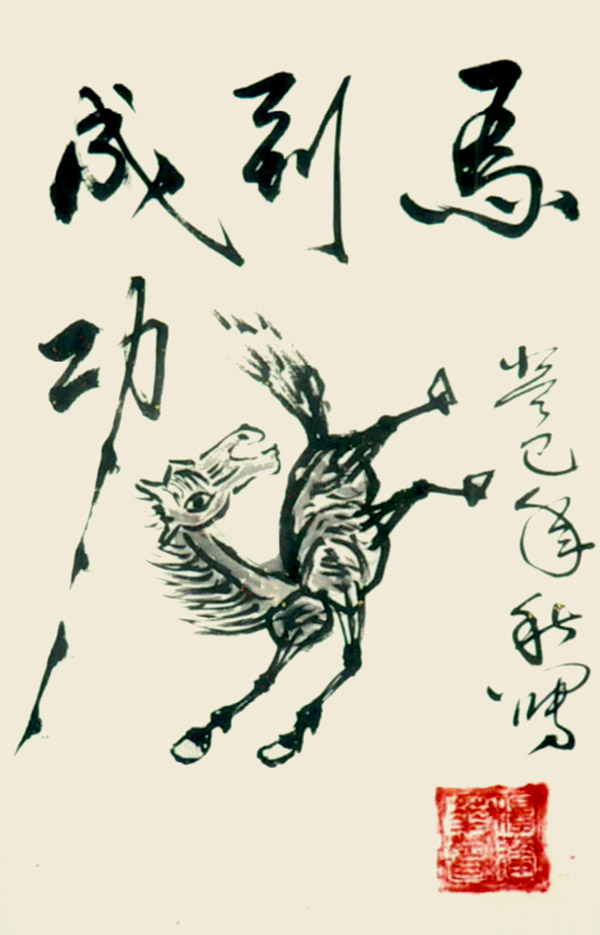 馬到成功
癸巳年秋